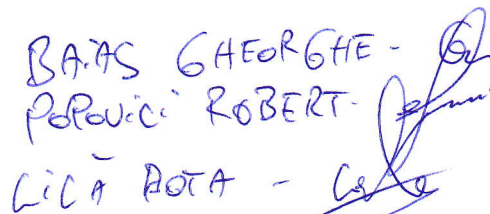 BAIAS GHEORGHE -
POPOVICI ROBERT -
LICĂ BOTA -